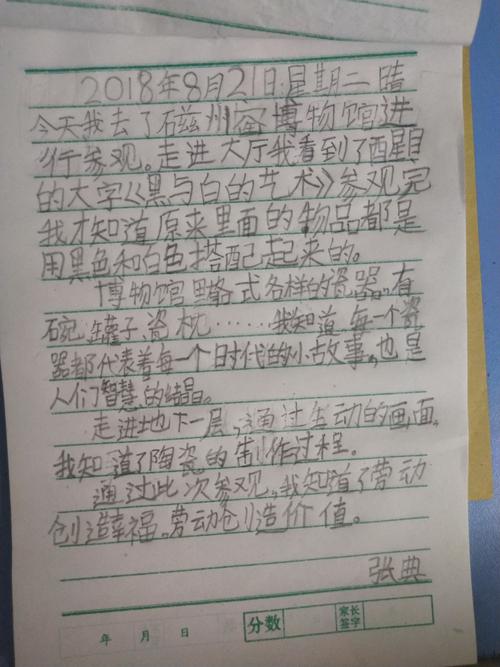 2018年8月21日 星期二 晴
今天我去了磁州窑博物馆进
行参观。走进大厅我看到了酉星目
的大字《黑与白的艺术》参观完
我才知道原来里面的物品都是
用黑色和白色搭配起来的。
博物馆里各式各样的瓷器。有
碗 罐子 瓷枕……我知道 每一个瓷
器都代表着每一个时代的小故事,也是
人们智慧的结晶。
走进地下一层,通过生动的画面,
我知道了陶瓷的制作过程。
通过此次参观,我知道了劳动
创造幸福。劳动创造价值。
张典
年 月 日 分数 家长
签字